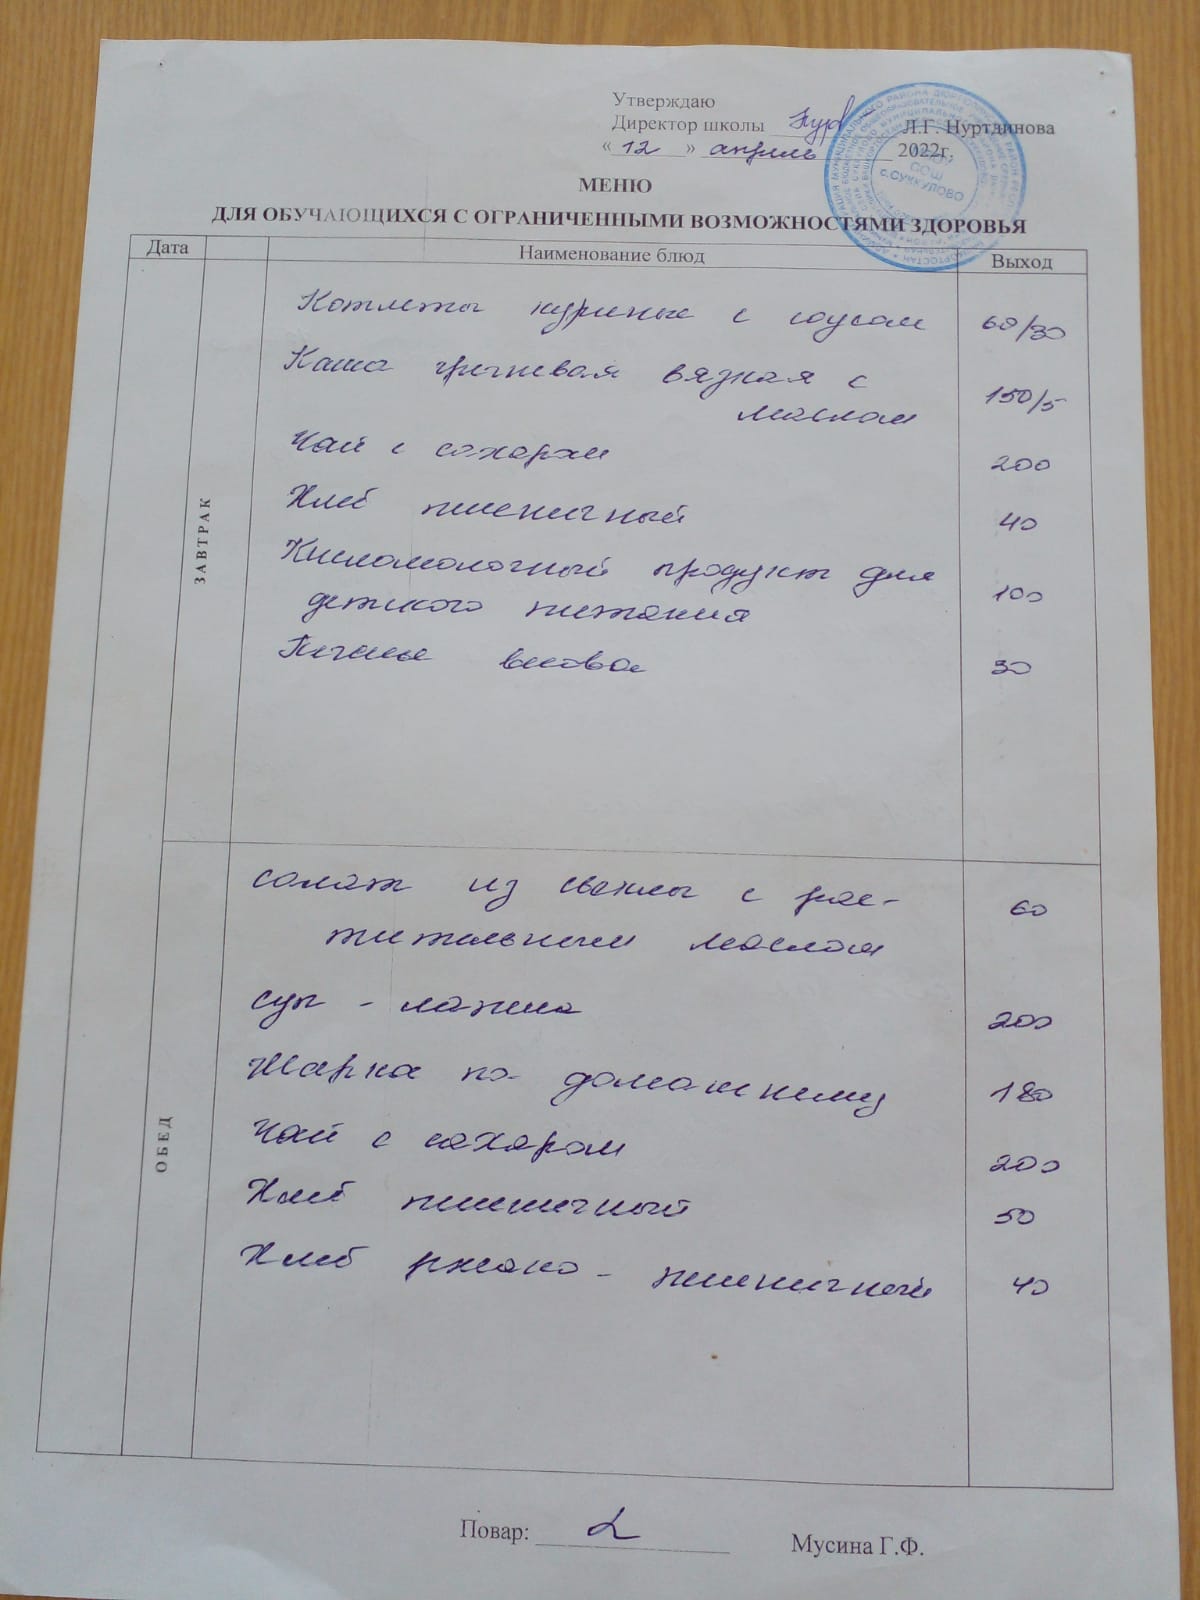 Утверждаю
Директор школы Л.Г. Нуртдинова
« 12 » апрель 2022г.
СОШ
с.СУККУЛОВО
МЕНЮ
ДЛЯ ОБУЧАЮЩИХСЯ С ОГРАНИЧЕННЫМИ ВОЗМОЖНОСТЯМИ ЗДОРОВЬЯ
Дата Наименование блюд Выход
ЗАВТРАК
Котлеты куриные с соусом 60/30
Каша гречневая вязкая с
маслом 150/5
Чай с сахаром 200
Хлеб пшеничный 40
Кисломолочный продукт для
детского питания 100
Печенье 30
ОБЕД
салат из свеклы с рас- 60
тительным маслом
суп - лапша 200
Жарка по- домашнему 180
Чай с сахаром 200
Хлеб пшеничный 50
Хлеб ржано - пшеничный 40
Повар: Мусина Г.Ф.